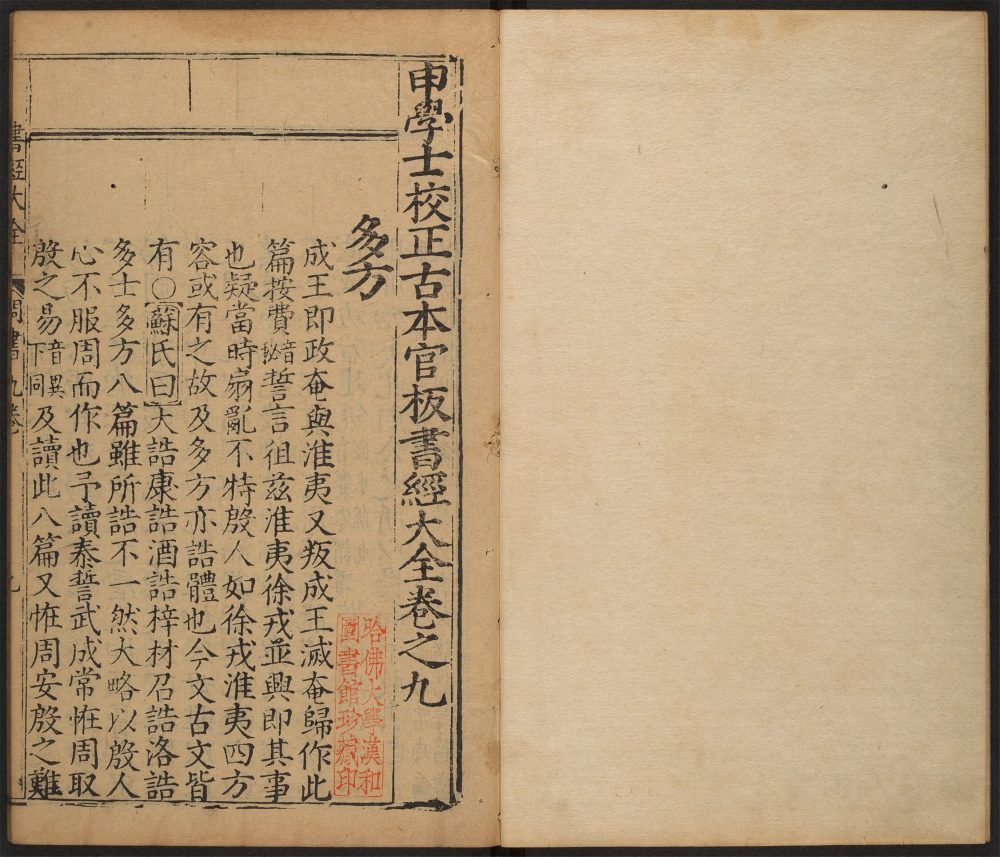 申學士校正古本官板書經大全卷之九
哈佛大學漢和
圖書館珍藏印
多方
成王即政奄與淮夷又叛成王滅奄歸作此
篇按費音秘誓言徂兹淮夷徐戎並興即其事
也疑當時扇亂不特殷人如徐戎淮夷四方
容或有之故及多方亦誥體也今文古文皆
有○蘇氏曰大誥康誥酒誥梓材召誥洛誥
多士多方八篇雖所誥不一然大略以殷人
心不服周而作也予讀泰誓武成常恠周取
殷之易音異下同及讀此八篇又恠周安殷之難
書經大全
周書九卷